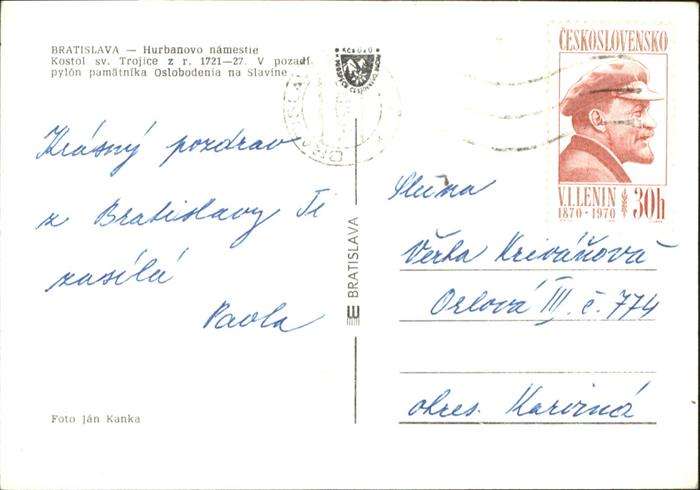 BRATISLAVA — Hurbanovo námestie
Kostol sv. Trojice z r. 1721—27. V pozadí
pylón pamätníka Oslobodenia na Slavíne
Krásný pozdrav
z Bratislavy Ti
zasílá
Pavla
Foto Ján Kanka
BRATISLAVA
ČESKOSLOVENSKO
V.I.LENIN
1870-1970
30h
Slečna
Věrka Kriváňová
Orlová III č. 774
okres. Karviná